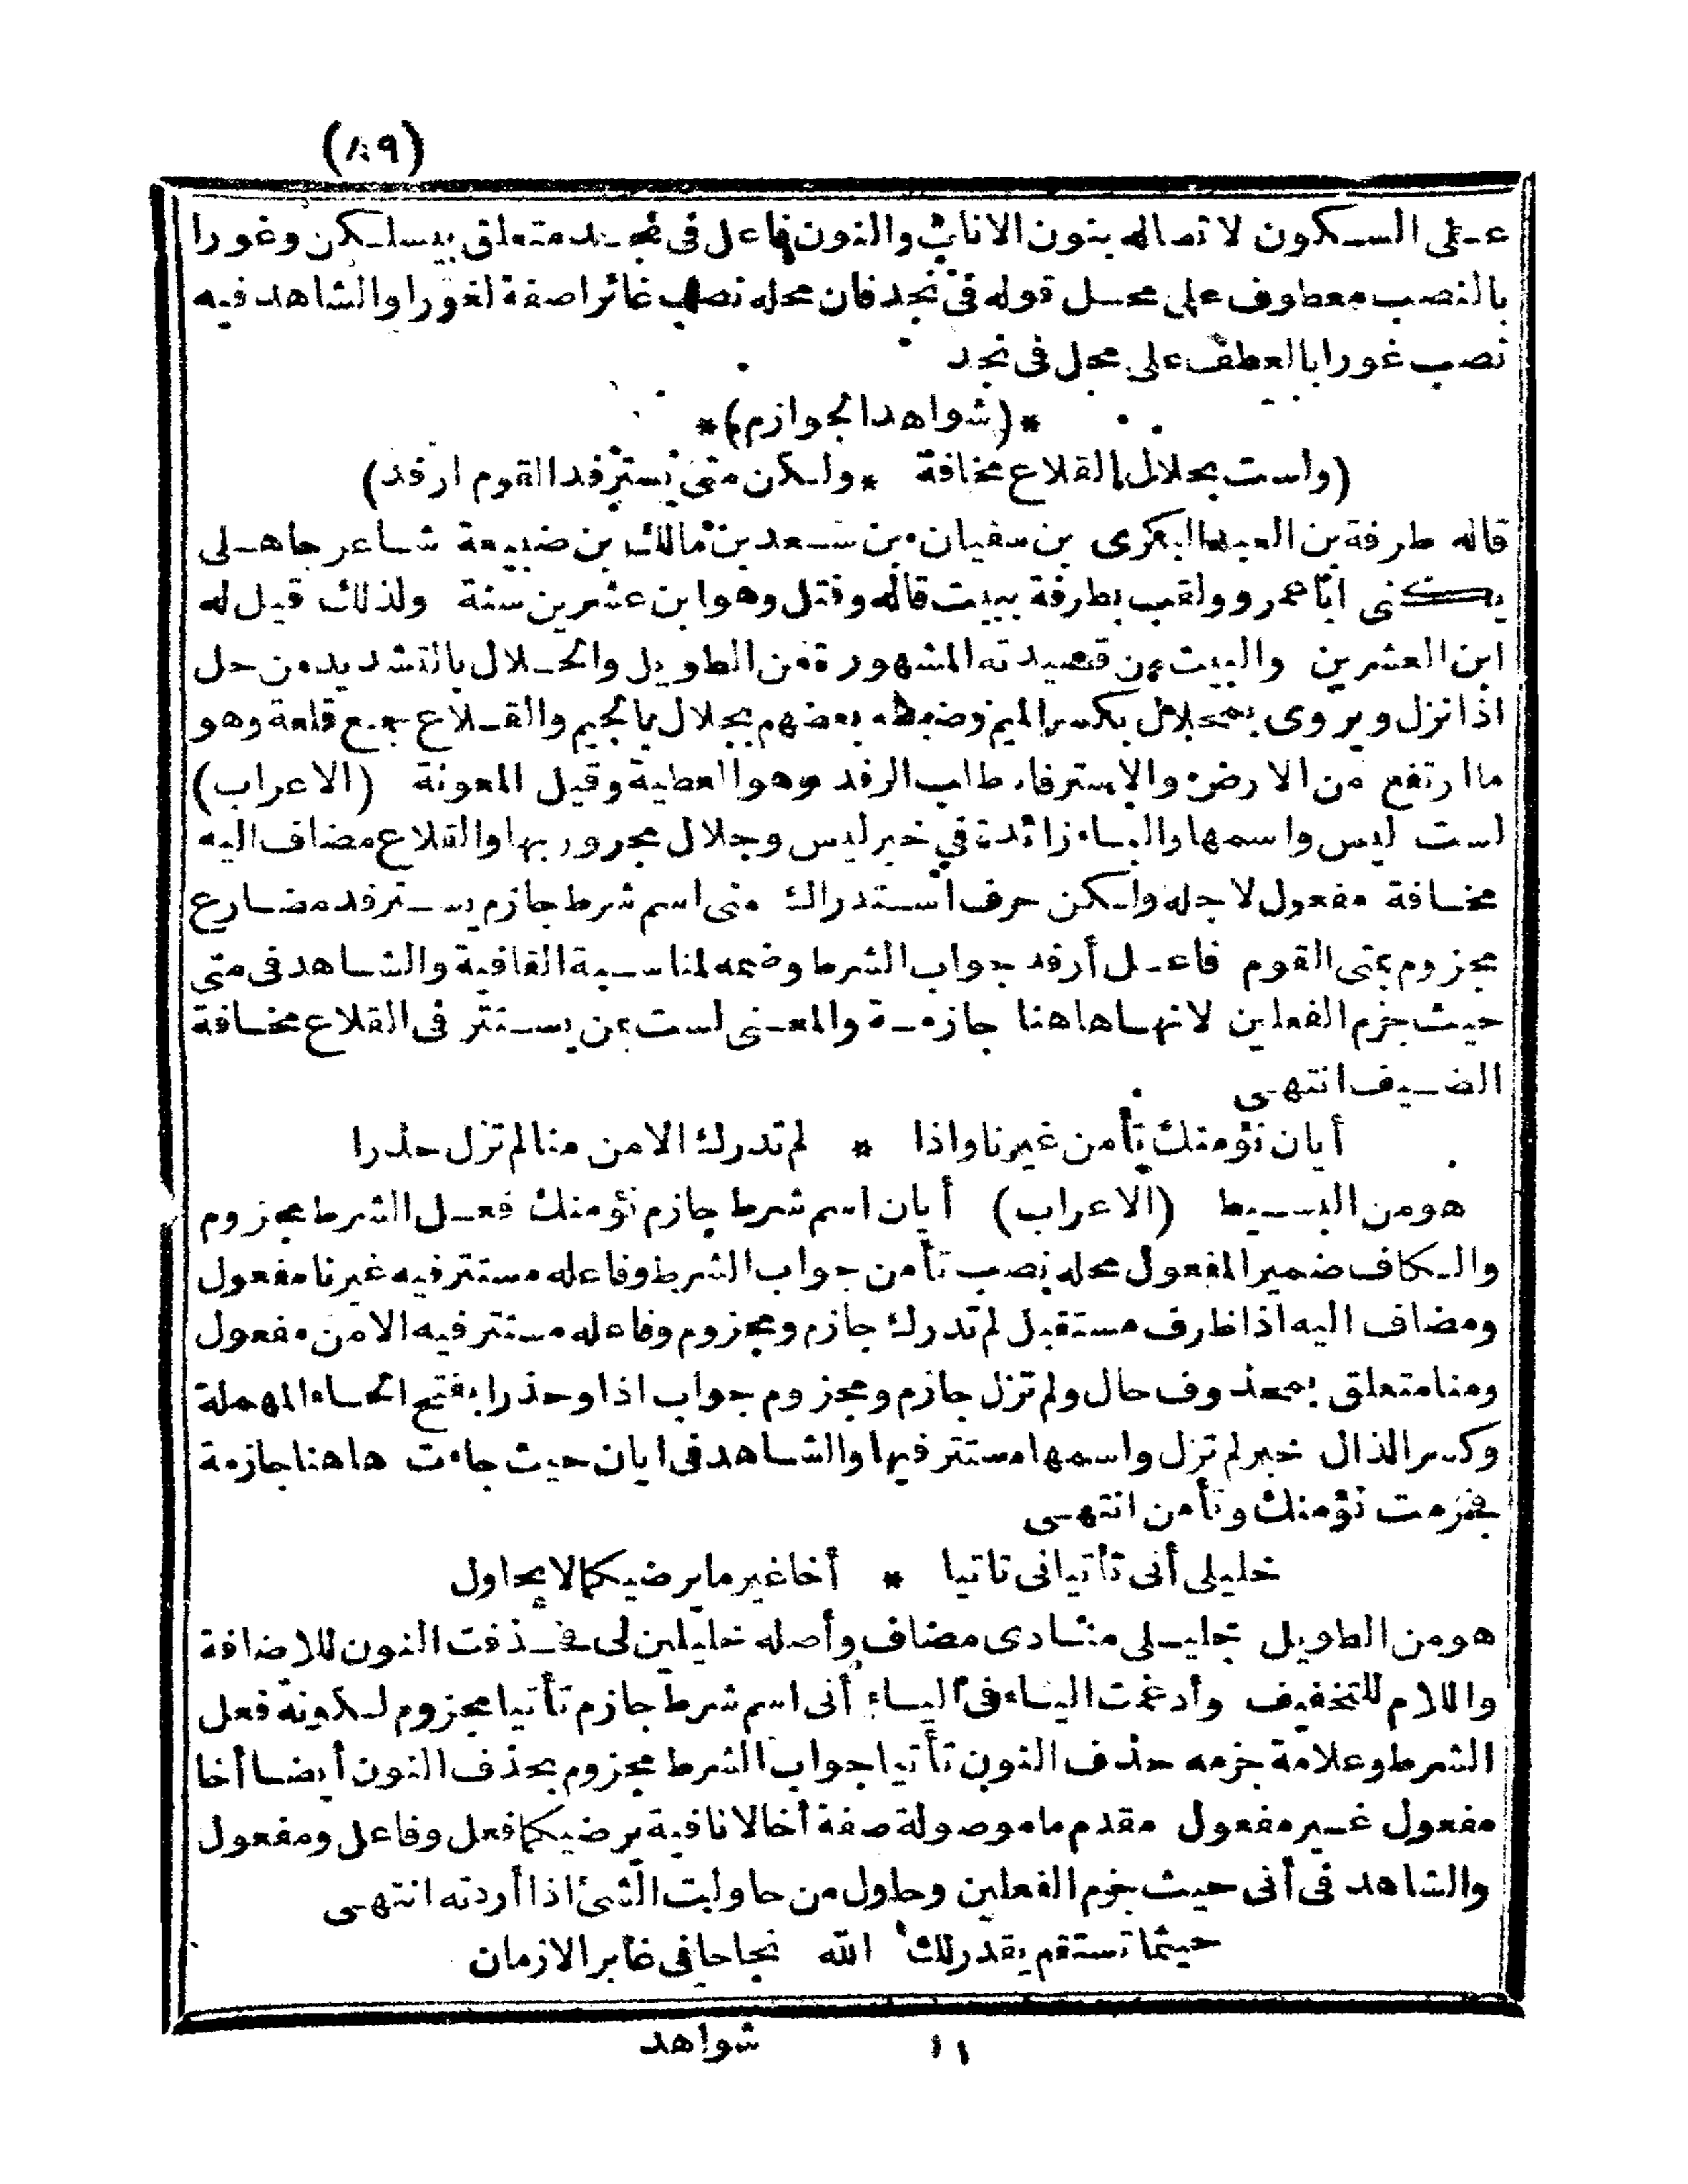 (٨٩)
على السكون لاتصاله بنون الاناث والنون فاعل فى نجد متعلق بيسلكن وغورا
بالنصب معطوف على محل قوله فى نجد فان محله نصب غائرا صفة لغورا والشاهد فيه
نصب غورا بالعطف على محل فى نجد
*(شواهد الجوازم)*
(ولست بحلال القلاع مخافة * ولكن متى يسترفد القوم ارفد)
قاله طرفة بن العبد البكرى بن سفيان بن سعد بن مالك بن ضبيعة شاعر جاهلى
يكنى ابا عمرو ولقب بطرفة ببيت قاله وقتل وهو ابن عشرين سنة ولذلك قيل له
ابن العشرين والبيت من قصيدته المشهورة من الطويل والحلال بالتشديد من حل
اذا نزل ويروى بمحلال بكسر الميم وضبطه بعضهم بجلال بالجيم والقلاع جمع قلعة وهو
ما ارتفع من الارض والاسترفاد طلب الرفد وهو العطية وقيل المعونة (الاعراب)
لست ليس واسمها والباء زائدة في خبر ليس وجلال مجرور بها والقلاع مضاف اليه
مخافة مفعول لاجله ولكن حرف استدراك متى اسم شرط جازم يسترفد مضارع
مجزوم بمتى القوم فاعل أرفد جواب الشرط وضمه لمناسبة القافية والشاهد فى متى
حيث جزم الفعلين لانها هاهنا جازمة والمعنى لست ممن يستتر فى القلاع مخافة
الضيف انتهى
أيان نؤمنك تأمن غيرنا واذا * لم تدرك الامن منا لم تزل حذرا
هو من البسيط (الاعراب) أيان اسم شرط جازم نؤمنك فعل الشرط مجزوم
والكاف ضمير المفعول محله نصب تأمن جواب الشرط وفاعله مستتر فيه غيرنا مفعول
ومضاف اليه اذا ظرف مستقبل لم تدرك جازم ومجزوم وفاعله مستتر فيه الامن مفعول
ومنا متعلق بمحذوف حال ولم تزل جازم ومجزوم جواب اذا وحذرا بفتح الحاء المهملة
وكسر الذال خبر لم تزل واسمها مستتر فيها والشاهد فى ايان حيث جاءت هاهنا جازمة
فجزمت نؤمنك وتأمن انتهى
خليلى أنى تأتيانى تاتيا * أخا غير ما يرضيكما لا يحاول
هو من الطويل خليلى منادى مضاف وأصله خليلين لى فحذفت النون للاضافة
واللام للتخفيف وأدغمت الياء فى الياء أنى اسم شرط جازم تأتيا مجزوم لكونه فعل
الشرط وعلامة جزمه حذف النون تأتيا جواب الشرط مجزوم بحذف النون أيضا أخا
مفعول غير مفعول مقدم ما موصولة صفة أخا لا نافية يرضيكما فعل وفاعل ومفعول
والشاهد فى أنى حيث جزم الفعلين وحاول من حاولت الشئ اذا أردته انتهى
حيثما تستقم يقدر لك الله نجاحا فى غابر الازمان
١١ شواهد